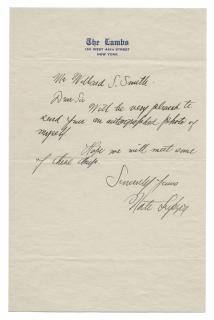 The Lambs
130 WEST 44TH STREET
NEW YORK
Mr Willard S. Smith.
Dear Sir Will be very pleased to
send you an autographed photo of
myself
Hope we will meet some
of these days.
Sincerely yours
Nate